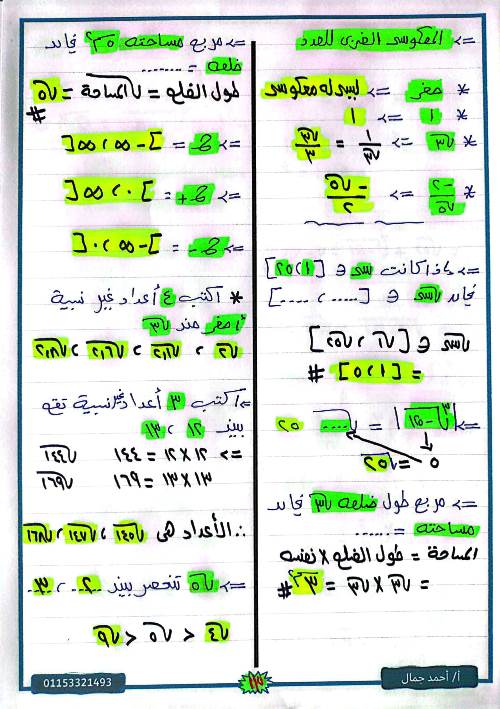 => المعكوس الضربى للعدد
* صفر => ليس له معكوس
* ١ => ١
* √٣ => ١/√٣ = √٣/٣
* -٢/√٥ => -√٥/٢
=> إذا كانت س ∈ [١ ، ٢٥]
فإن √س ∈ [..... ، .....]
√س ∈ [√١ ، √٢٥]
= [١ ، ٥] #
=> |∛-١٢٥| = √..... ٢٥
٥ = √٢٥
=> مربع طول ضلعه √٣ فإن
مساحته = ......
المساحة = طول الضلع × نفسه
= √٣ × √٣ = ٣ سم٢ #
=> مربع مساحته ٥ سم٢ فإن
ضلعه = ........
طول الضلع = √المساحة = √٥
#
=> ح = ]-∞ ، ∞[
=> ح+ = ]٠ ، ∞[
=> ح- = ]-∞ ، ٠[
* اكتب ٤ أعداد غير نسبية
أصغر من √٣
√٢ ، √٢٫١ ، √٢٫٦ ، √٢٫٨
=> اكتب ٣ أعداد غير نسبية تقع
بين ١٢ ، ١٣
=> ١٢ × ١٢ = ١٤٤ √١٤٤
١٣ × ١٣ = ١٦٩ √١٦٩
∴ الأعداد هى √١٤٥ ، √١٤٧ ، √١٦٨
=> √٥ تنحصر بين ..٢.. ، ..٣..
√٤ < √٥ < √٩
أ/ أحمد جمال
١٣
01153321493